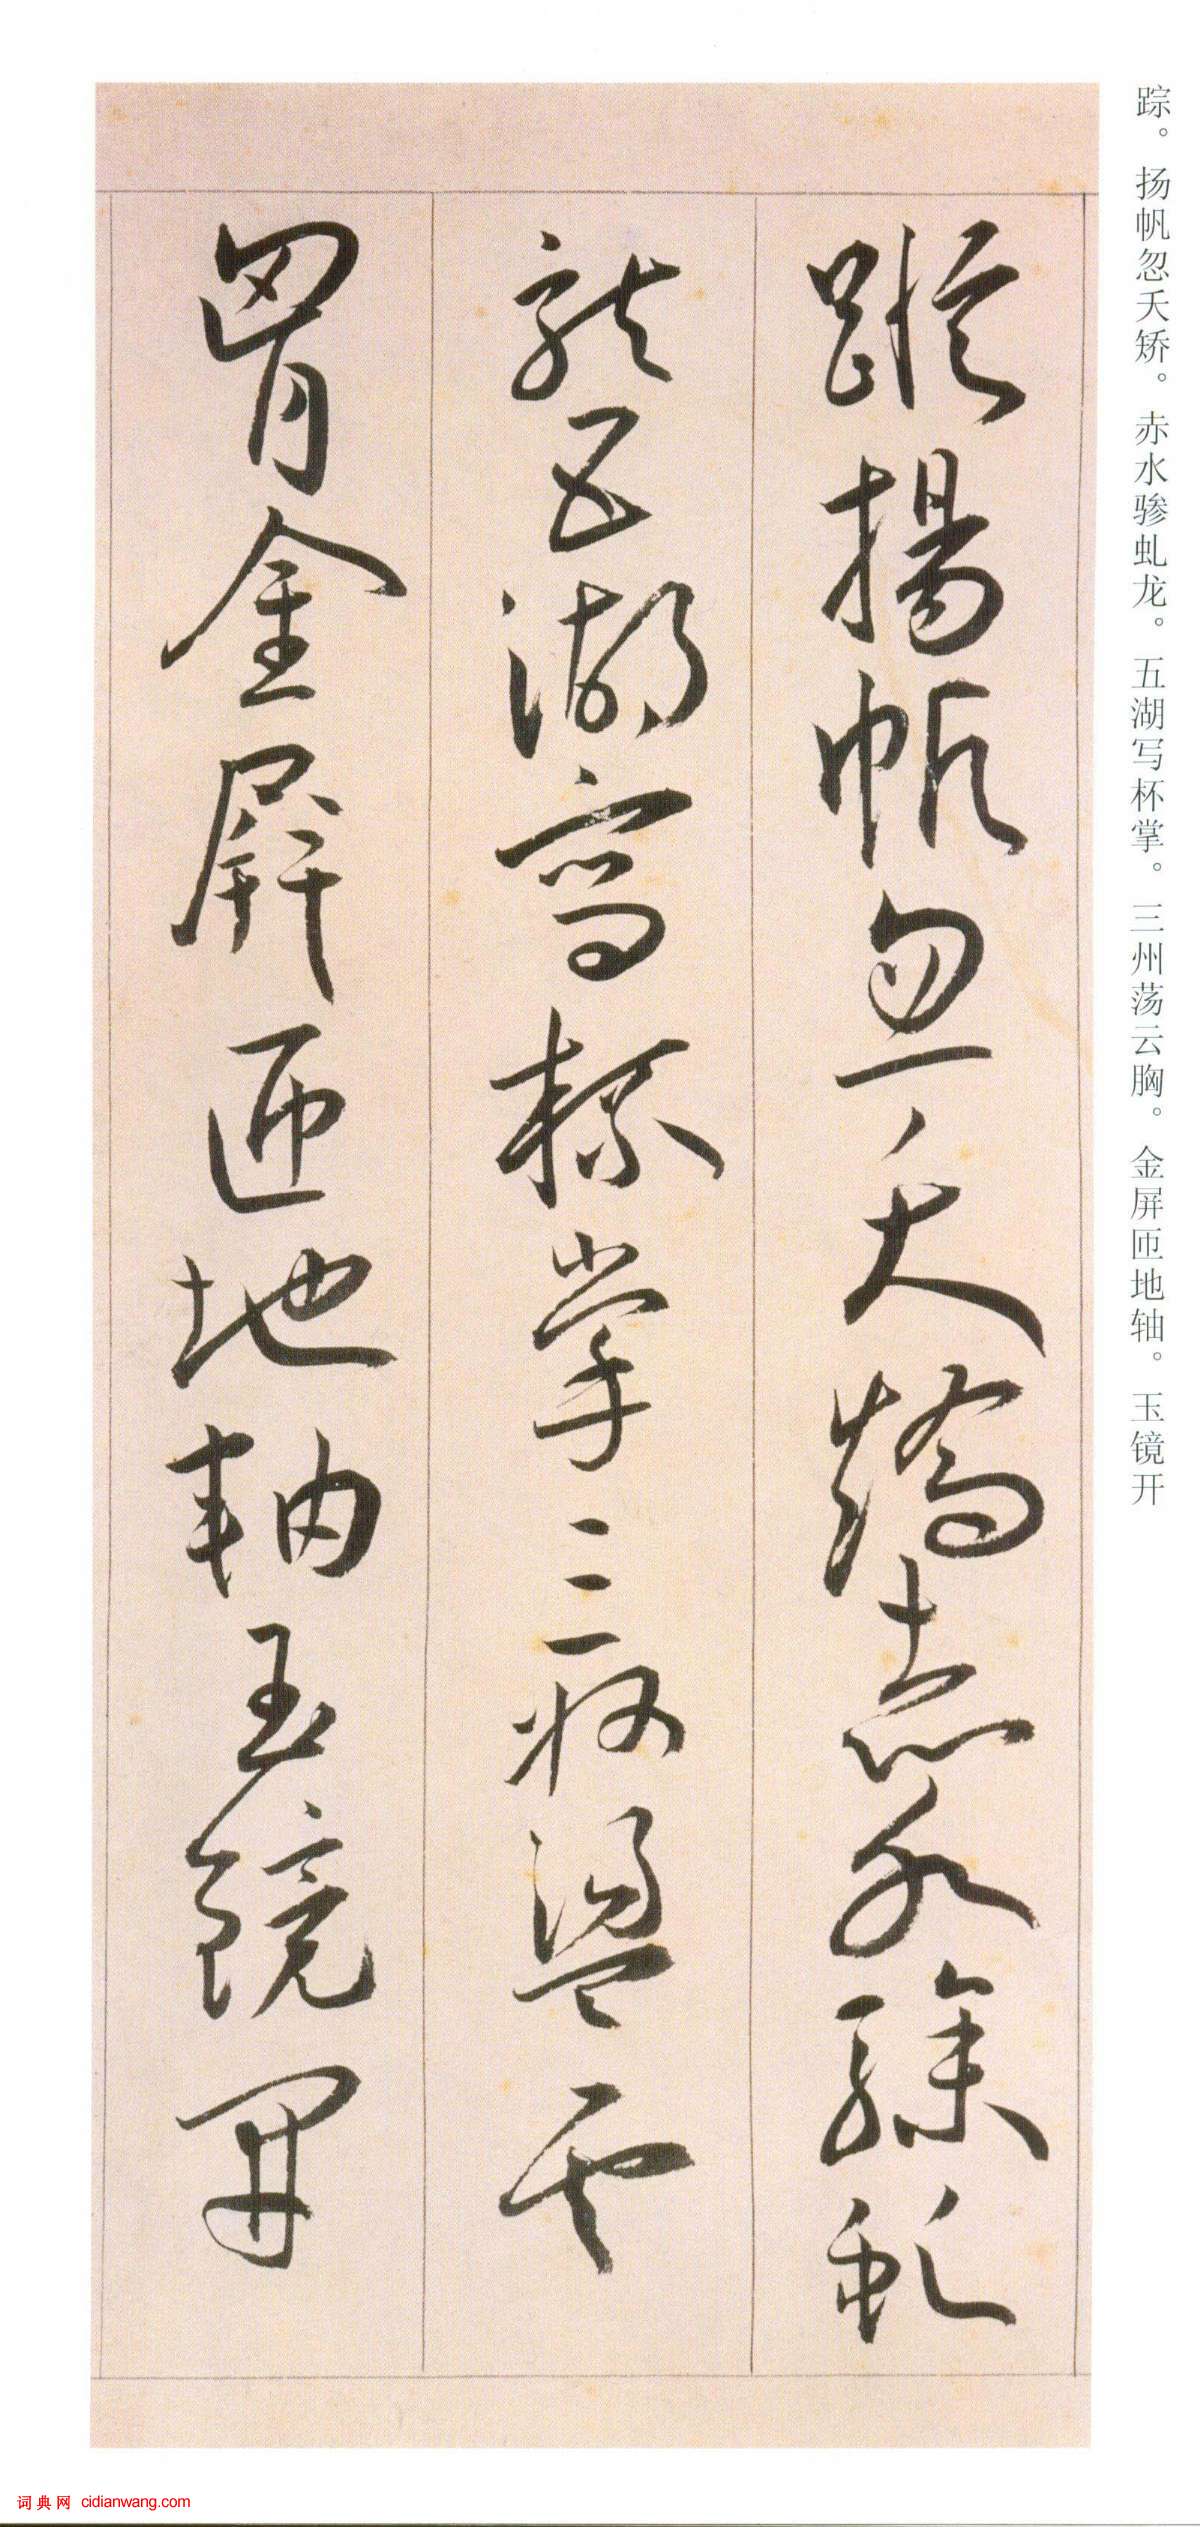 踪。扬帆忽夭矫。赤水骖虬龙。五湖写杯掌。三州荡云胸。金屏匝地轴。玉镜开
蹤揚帆忽夭矯赤水驂虬
龍五湖寫杯掌三州盪云
胷金屏匝地軸玉鏡開
词典网 cidianwang.com